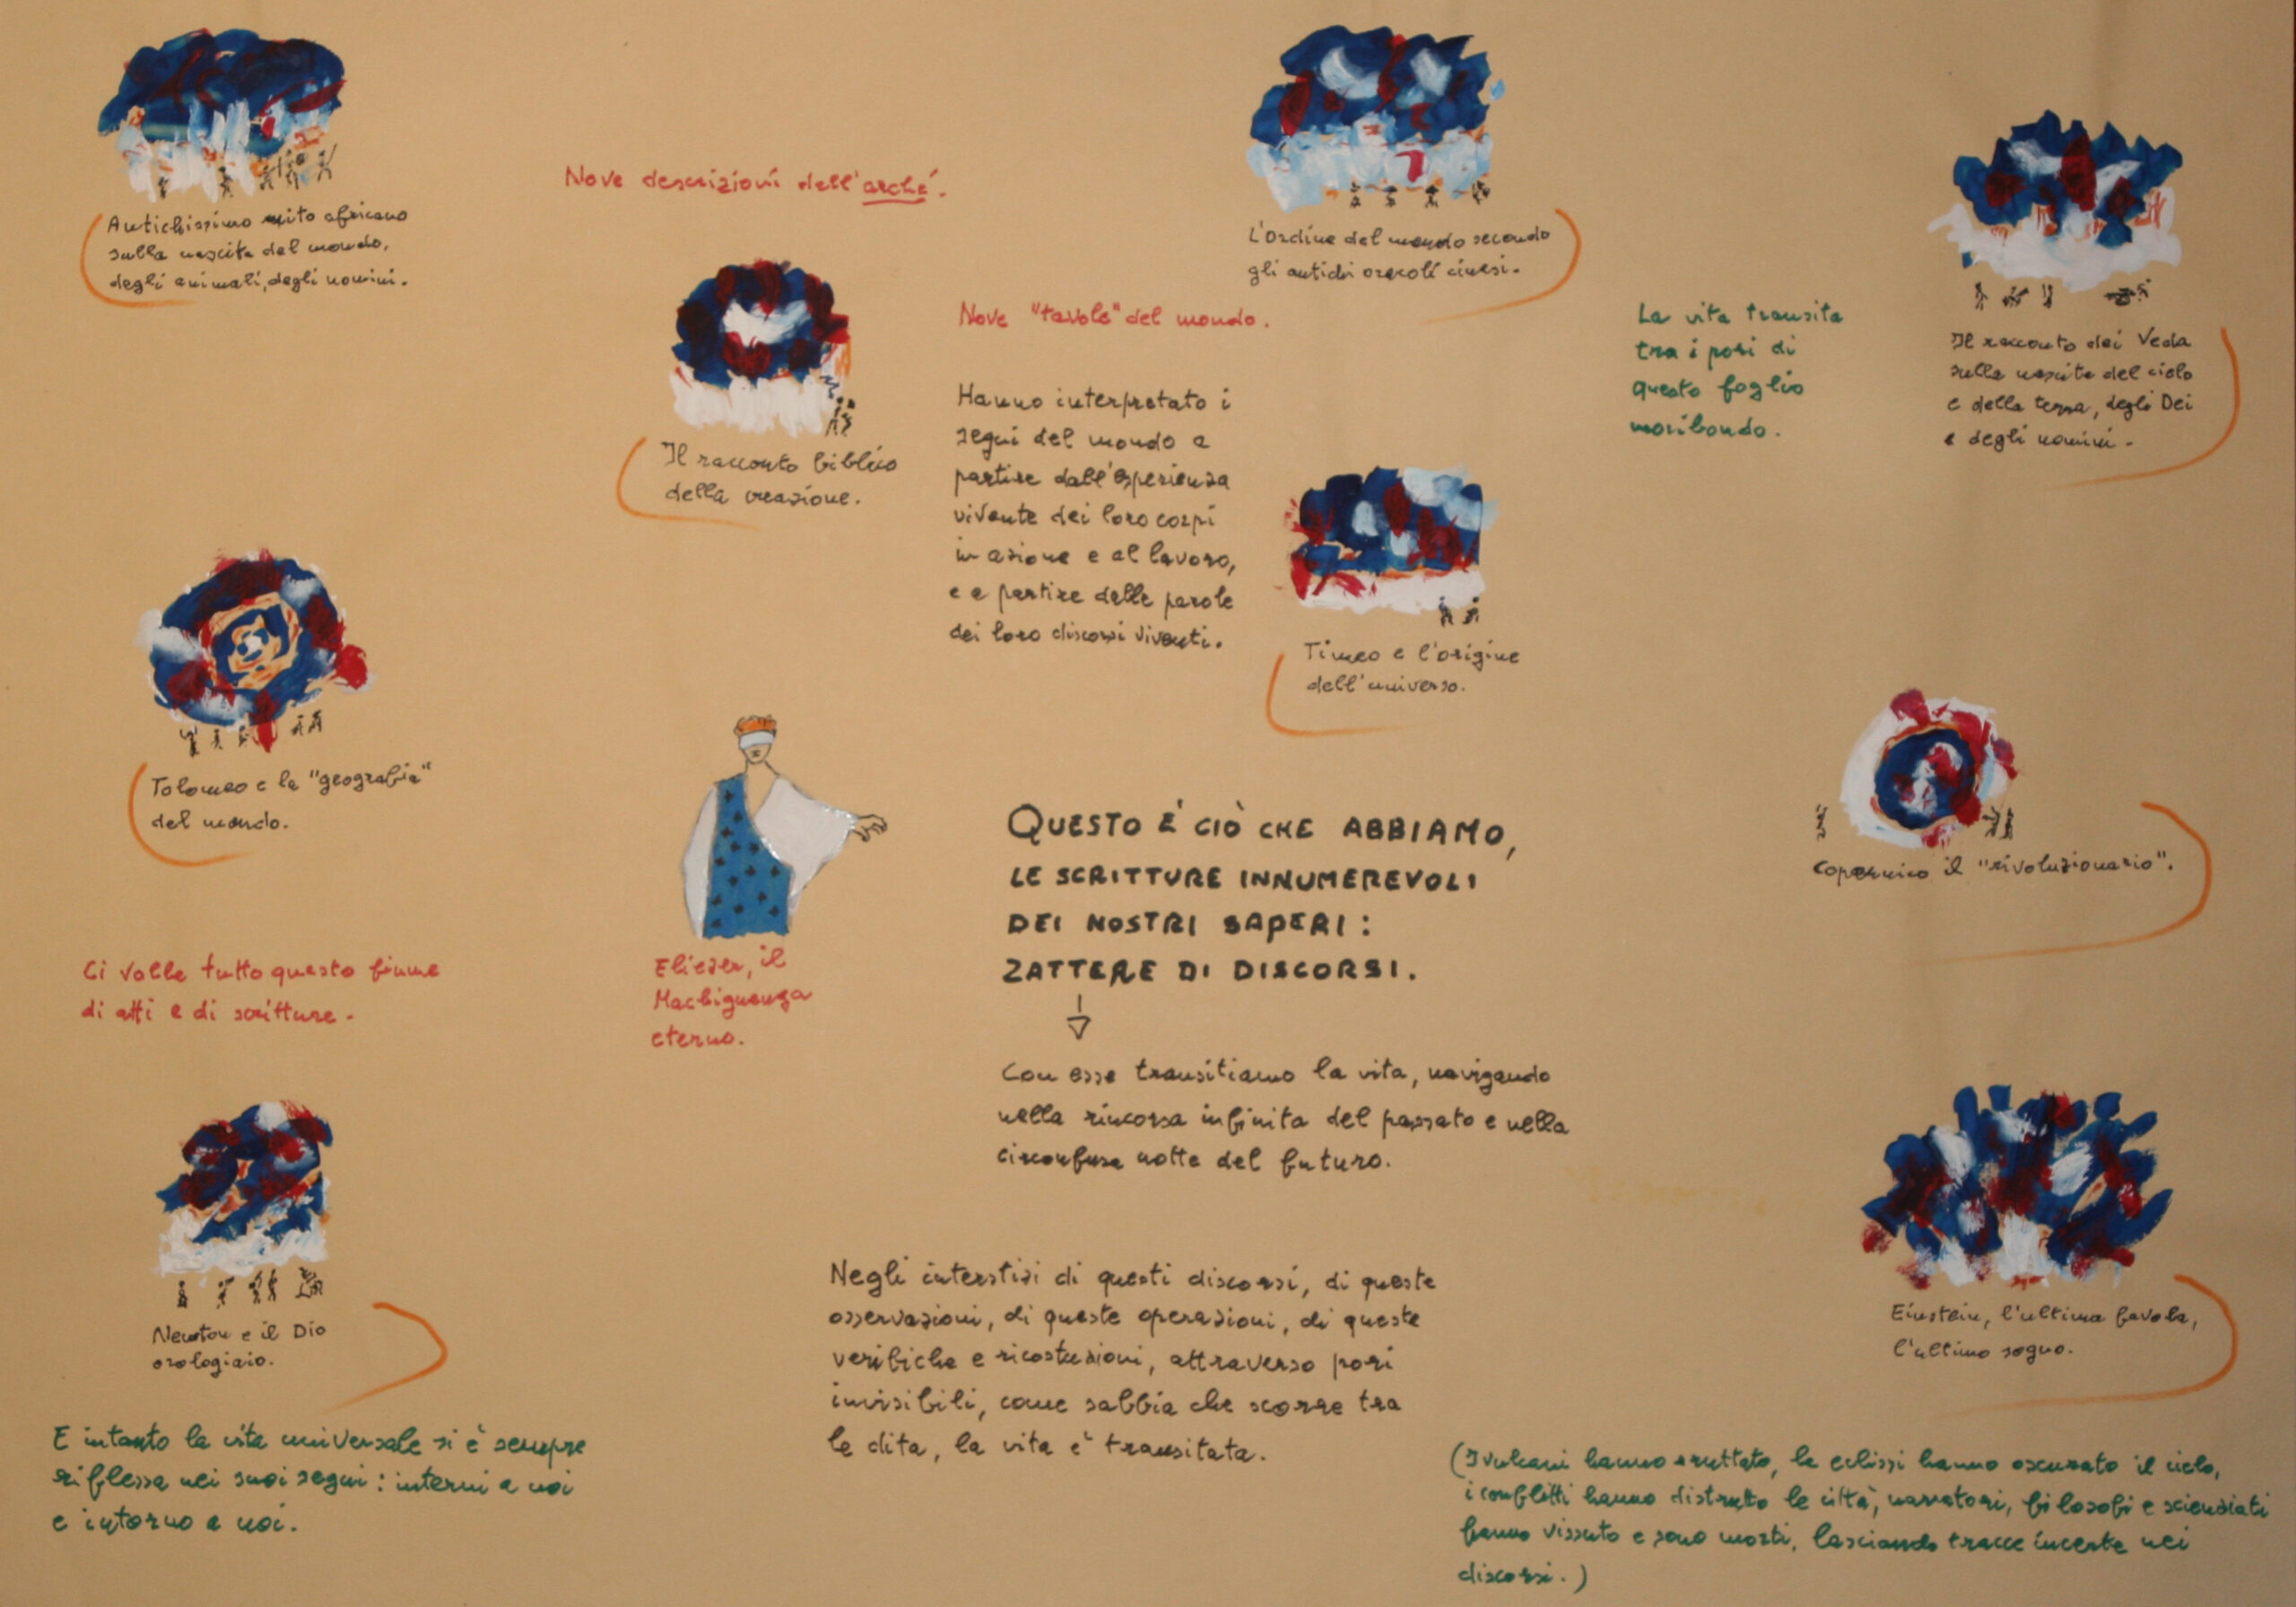 Antichissimo mito africano
sulla nascita del mondo,
degli animali, degli uomini.
Nove descrizioni dell'arché.
L'ordine del mondo secondo
gli antichi oracoli cinesi.
Il racconto biblico
della creazione.
Nove "tavole" del mondo.
Hanno interpretato i
segni del mondo a
partire dall'esperienza
vivente dei loro corpi
in azione e al lavoro,
e a partire dalle parole
dei loro discorsi viventi.
La vita transita
tra i pori di
questo foglio
moribondo.
Il racconto dei Veda
sulla nascita del cielo
e della terra, degli Dei
e degli uomini.
Timeo e l'origine
dell'universo.
Tolomeo e la "geografia"
del mondo.
Copernico il "rivoluzionario".
QUESTO È CIÒ CHE ABBIAMO,
LE SCRITTURE INNUMEREVOLI
DEI NOSTRI SAPERI:
ZATTERE DI DISCORSI.
Ci volle tutto questo fiume
di atti e di scritture.
Eliezer, il
Machiguenga
eterno.
Con esse transitiamo la vita, navigando
nella rincorsa infinita del passato e nella
circonfusa notte del futuro.
Newton e il Dio
orologiaio.
Negli interstizi di questi discorsi, di queste
osservazioni, di queste operazioni, di queste
verifiche e ricostruzioni, attraverso pori
invisibili, come sabbia che scorre tra
le dita, la vita è transitata.
Einstein, l'ultima favola,
l'ultimo sogno.
E intanto la vita universale si è sempre
riflessa nei suoi segni: interni a noi
e intorno a noi.
(I vulcani hanno eruttato, le eclissi hanno oscurato il cielo,
i conflitti hanno distrutto le città; narratori, filosofi e scienziati
hanno vissuto e sono morti, lasciando tracce incerte nei
discorsi.)